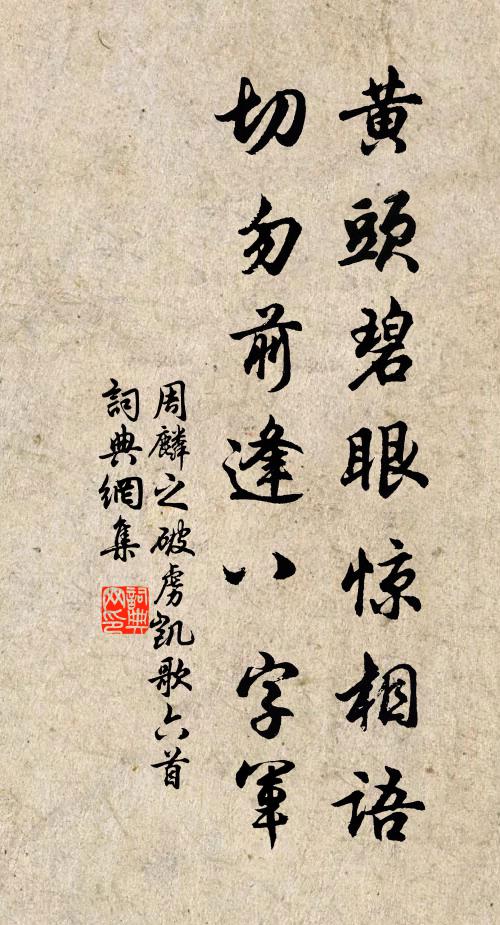 黄頭碧眼惊相語
切勿前逢八字軍
周麟之破虏凯歌六首
詞典網集
詞典网印